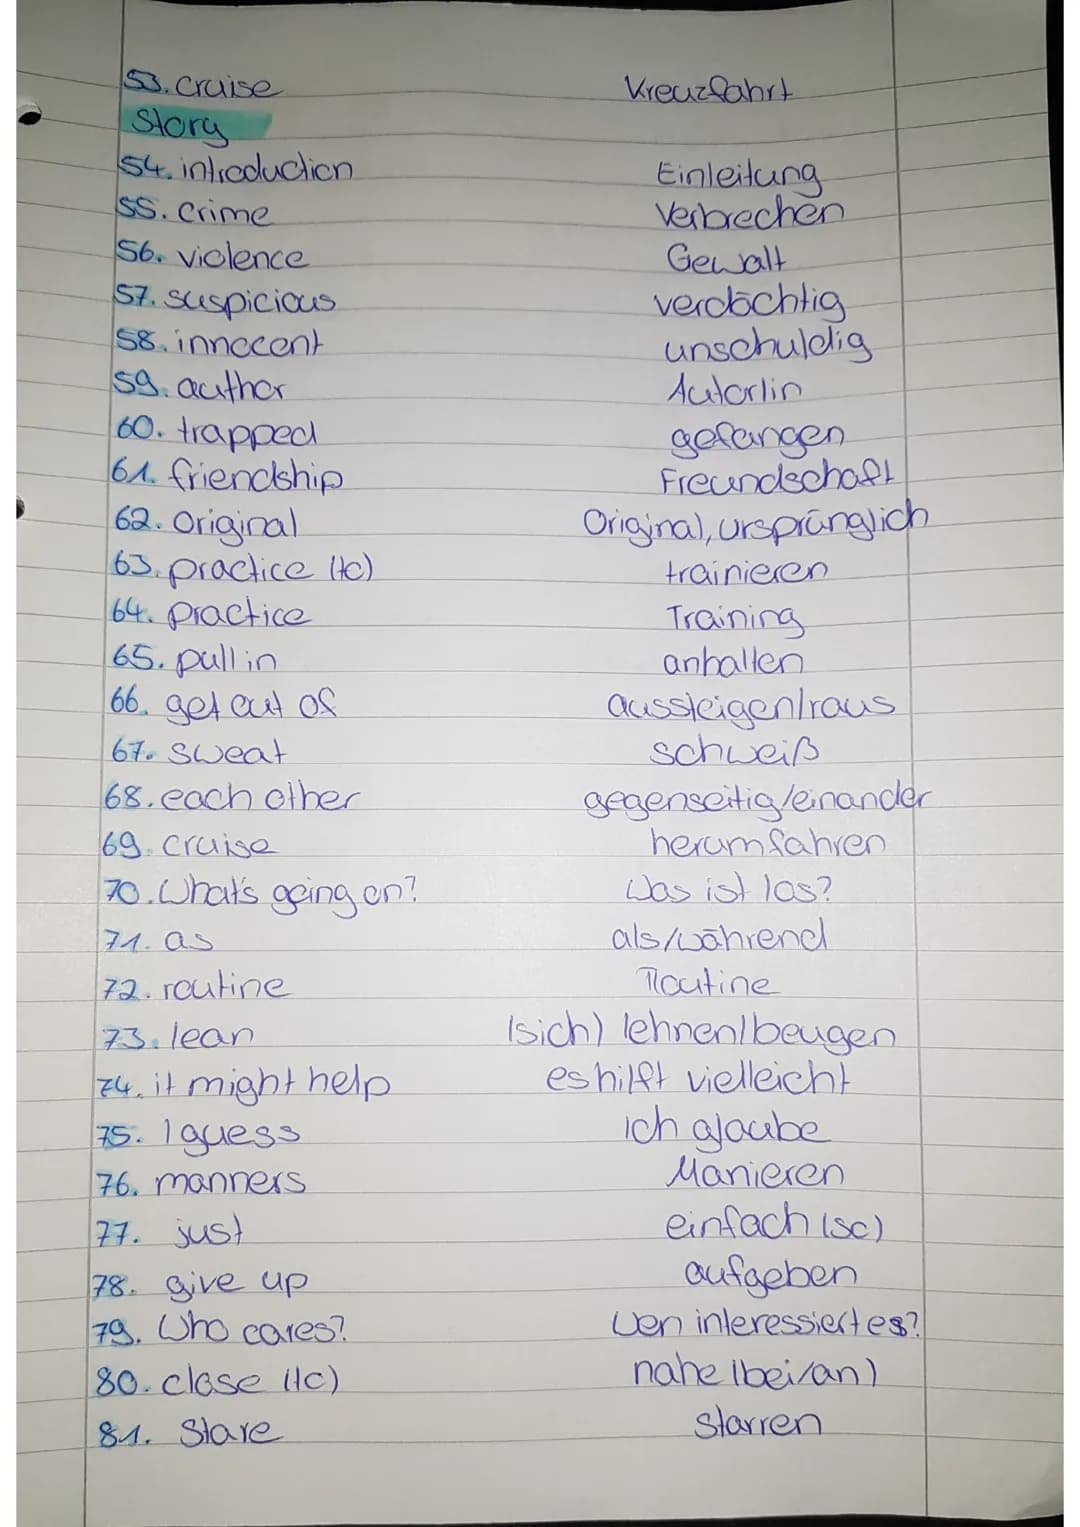 53. cruise Kreuzfahrt
Story
54. introduction Einleitung
55. crime Verbrechen
56. violence Gewalt
57. suspicious verdächtig
58. innocent unschuldig
59. author Autor/in
60. trapped gefangen
61. friendship Freundschaft
62. Original Original, ursprünglich
63. practice (to) trainieren
64. practice Training
65. pull in anhalten
66. get out of aussteigen/raus
67. sweat schweiß
68. each other gegenseitig/einander
69. cruise herumfahren
70. What's going on? Was ist los?
71. as als/während
72. routine Routine
73. lean (sich) lehnen/beugen
74. it might help es hilft vielleicht
75. I guess ich glaube
76. manners Manieren
77. just einfach (so)
78. give up aufgeben
79. Who cares? Wen interessiert es?
80. close (to) nahe (bei/an)
81. Stare starren